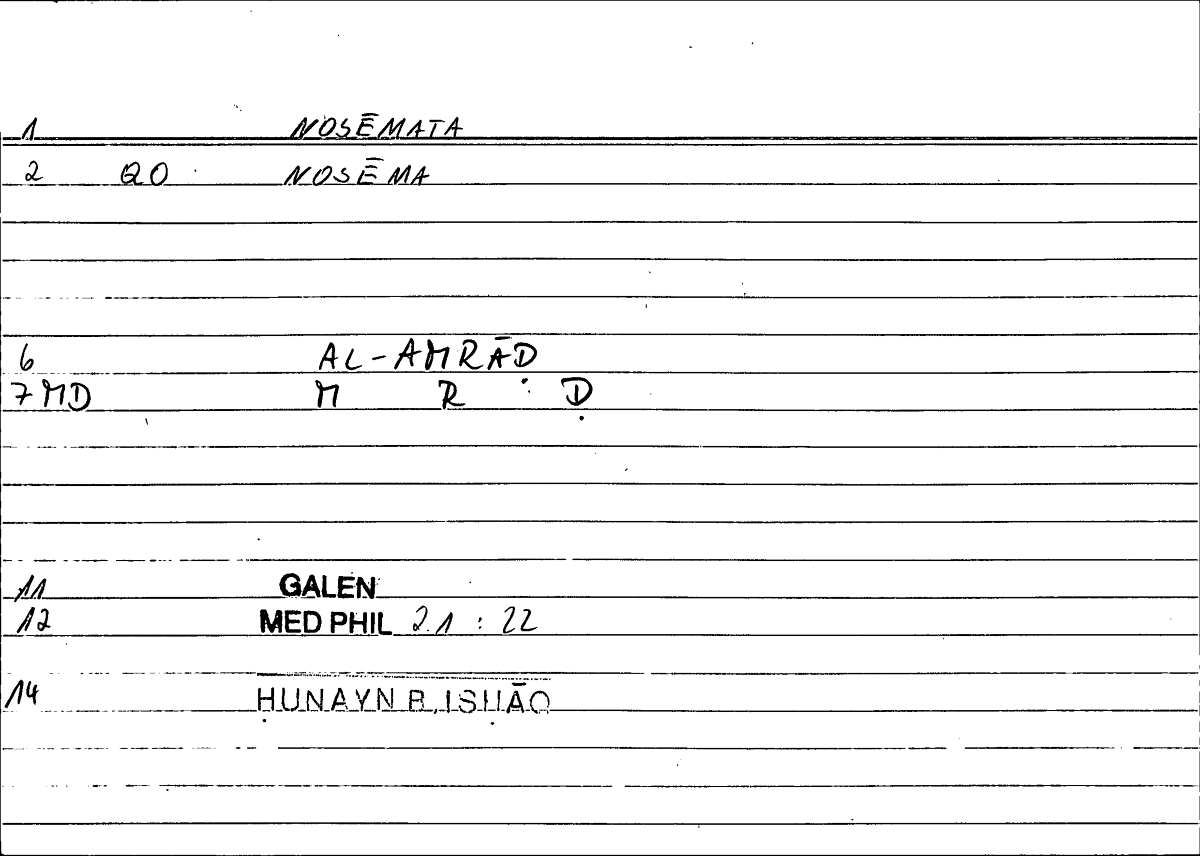 1 NOSĒMATA
2 QO NOSĒMA
6 AL-AMRĀḌ
7 MD M R Ḍ
11 GALEN
12 MED PHIL 2.1 : 22
14 ḤUNAYN B. ISḤĀQ